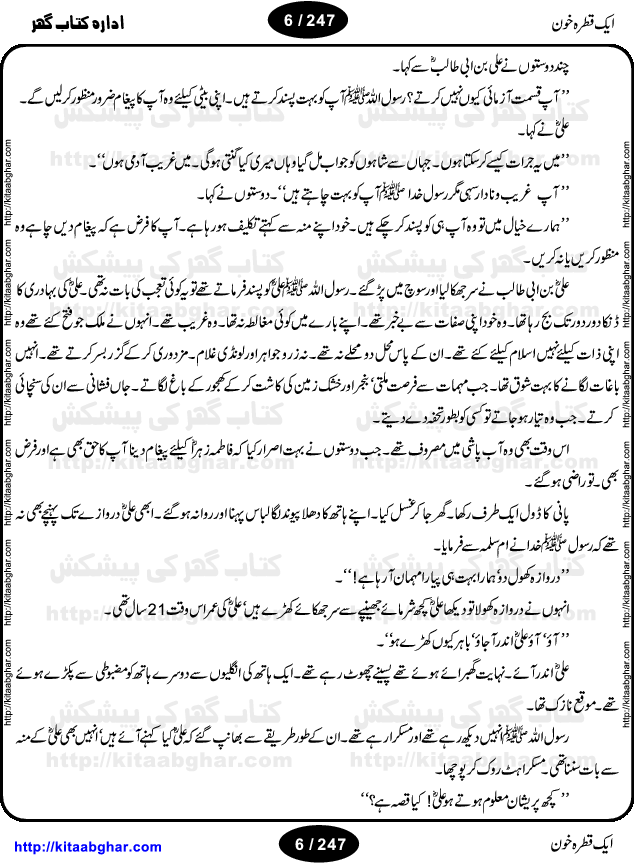 ادارہ کتاب گھر
6 / 247
ایک قطرہ خون
چند دوستوں نے علی بن ابی طالبؓ سے کہا۔
’’آپ قسمت آزمائی کیوں نہیں کرتے؟ رسول اللہ ﷺ آپ کو بہت پسند کرتے ہیں۔ اپنی بیٹی کیلئے وہ آپ کا پیغام ضرور منظور کرلیں گے۔
علیؓ نے کہا۔
’’میں یہ جرات کیسے کرسکتا ہوں۔ جہاں سے شاہوں کو جواب مل گیا وہاں میری کیا گنتی ہوگی۔ میں غریب آدمی ہوں‘‘۔
’’آپ غریب و نادار سہی مگر رسول خدا ﷺ آپ کو بہت چاہتے ہیں‘‘۔ دوستوں نے کہا۔
’’ہمارے خیال میں تو وہ آپ ہی کو پسند کرچکے ہیں۔ خود اپنے منہ سے کہتے تکلیف ہو رہا ہے۔ آپ کا فرض ہے کہ پیغام دیں چاہے وہ
منظور کریں یا نہ کریں۔
علیؓ بن ابی طالب نے سر جھکا لیا اور سوچ میں پڑ گئے۔ رسول اللہ ﷺ علیؓ کو پسند فرماتے تھے تو یہ کوئی تعجب کی بات نہ تھی۔ علیؓ کی بہادری کا
ڈنکا دور دور تک بج رہا تھا۔ وہ خود اپنی صفات سے بے خبر تھے۔ اپنے بارے میں کوئی مغالطہ نہ تھا۔ وہ غریب تھے۔ انہوں نے ملک جو فتح کئے تھے وہ
اپنی ذات کیلئے نہیں اسلام کیلئے کئے تھے۔ ان کے پاس محل دو محلے نہ تھے۔ نہ زر و جواہر اور لونڈی غلام۔ مزدوری کرکے گزر بسر کرتے تھے۔ انہیں
باغات لگانے کا بہت شوق تھا۔ جب مہمات سے فرصت ملتی‘ بنجر اور خشک زمین کی کاشت کرکے کھجور کے باغ لگاتے۔ جاں فشانی سے ان کی سنچائی
کرتے۔ جب وہ تیار ہو جاتے تو کسی کو بطور تحفہ دے دیتے۔
اس وقت بھی وہ آب پاشی میں مصروف تھے۔ جب دوستوں نے بہت اصرار کیا کہ فاطمہ زہراؓ کیلئے پیغام دینا آپ کا حق بھی ہے اور فرض
بھی۔ تو راضی ہو گئے۔
پانی کا ڈول ایک طرف رکھا۔ گھر جا کر غسل کیا۔ اپنے ہاتھ کا دھلا پیوند لگا لباس پہنا اور روانہ ہو گئے۔ ابھی علیؓ دروازے تک پہنچے بھی نہ
تھے کہ رسول ﷺ خدا نے ام سلمہ سے فرمایا۔
’’دروازہ کھول دو‘ ہمارا بہت ہی پیارا مہمان آ رہا ہے!‘‘۔
انہوں نے دروازہ کھولا تو دیکھا علیؓ کچھ شرمائے جھینپے سے سر جھکائے کھڑے ہیں‘ علیؓ کی عمر اس وقت 21 سال تھی۔
’’آؤ‘ آؤ علیؓ اندر آ جاؤ‘ باہر کیوں کھڑے ہو‘‘۔
علیؓ اندر آئے۔ نہایت گھبرائے ہوئے تھے پسینے چھوٹ رہے تھے۔ ایک ہاتھ کی انگلیوں سے دوسرے ہاتھ کو مضبوطی سے پکڑے ہوئے
تھے۔ موقع نازک تھا۔
رسول اللہ ﷺ انہیں دیکھ رہے تھے اور مسکرا رہے تھے۔ ان کے طور طریقے سے بھانپ گئے کہ علیؓ کیا کہنے آئے ہیں‘ انہیں بھی علیؓ کے منہ
سے بات سننا تھی۔ مسکراہٹ روک کر پوچھا۔
’’کچھ پریشان معلوم ہوتے ہو علیؓ! کیا قصہ ہے؟‘‘
http://kitaabghar.com
6 / 247
ایک قطرہ خون